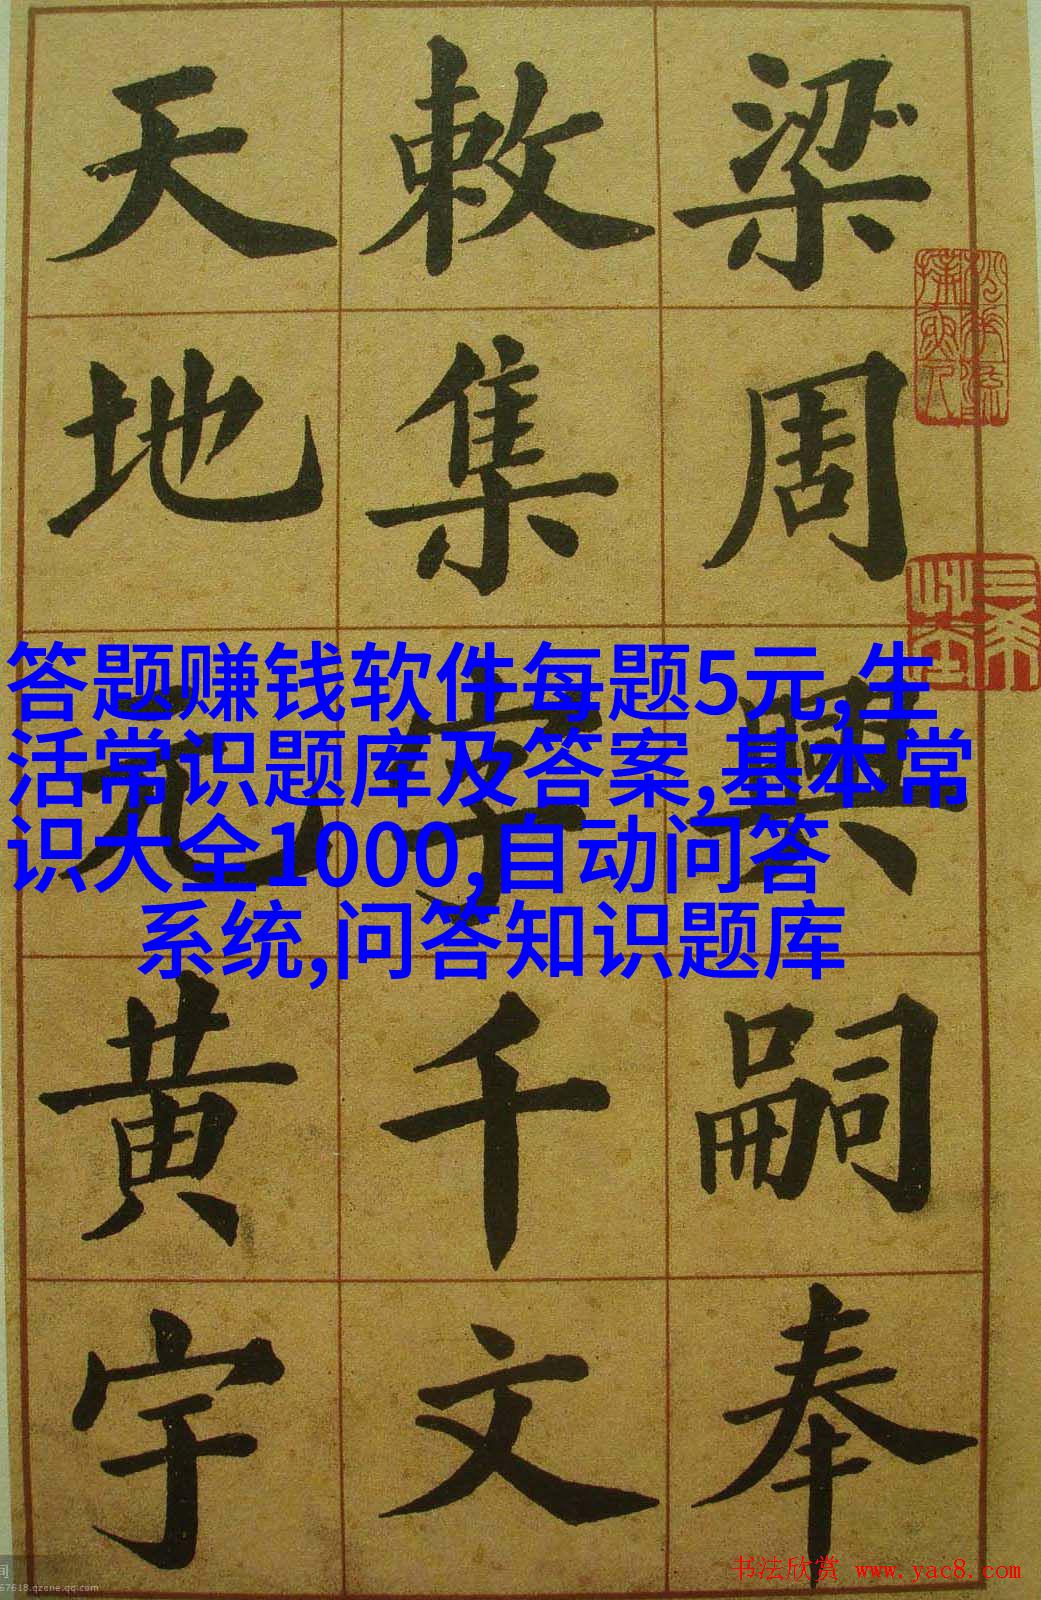 梁周興嗣奉
敕集字千文
天地元黄宇
答题赚钱软件每题5元,生
活常识题库及答案,基本常
识大全1000,自动问答
系统,问答知识题库
书法欣赏 www.yac8.com
间
67618.qzone.qq.com